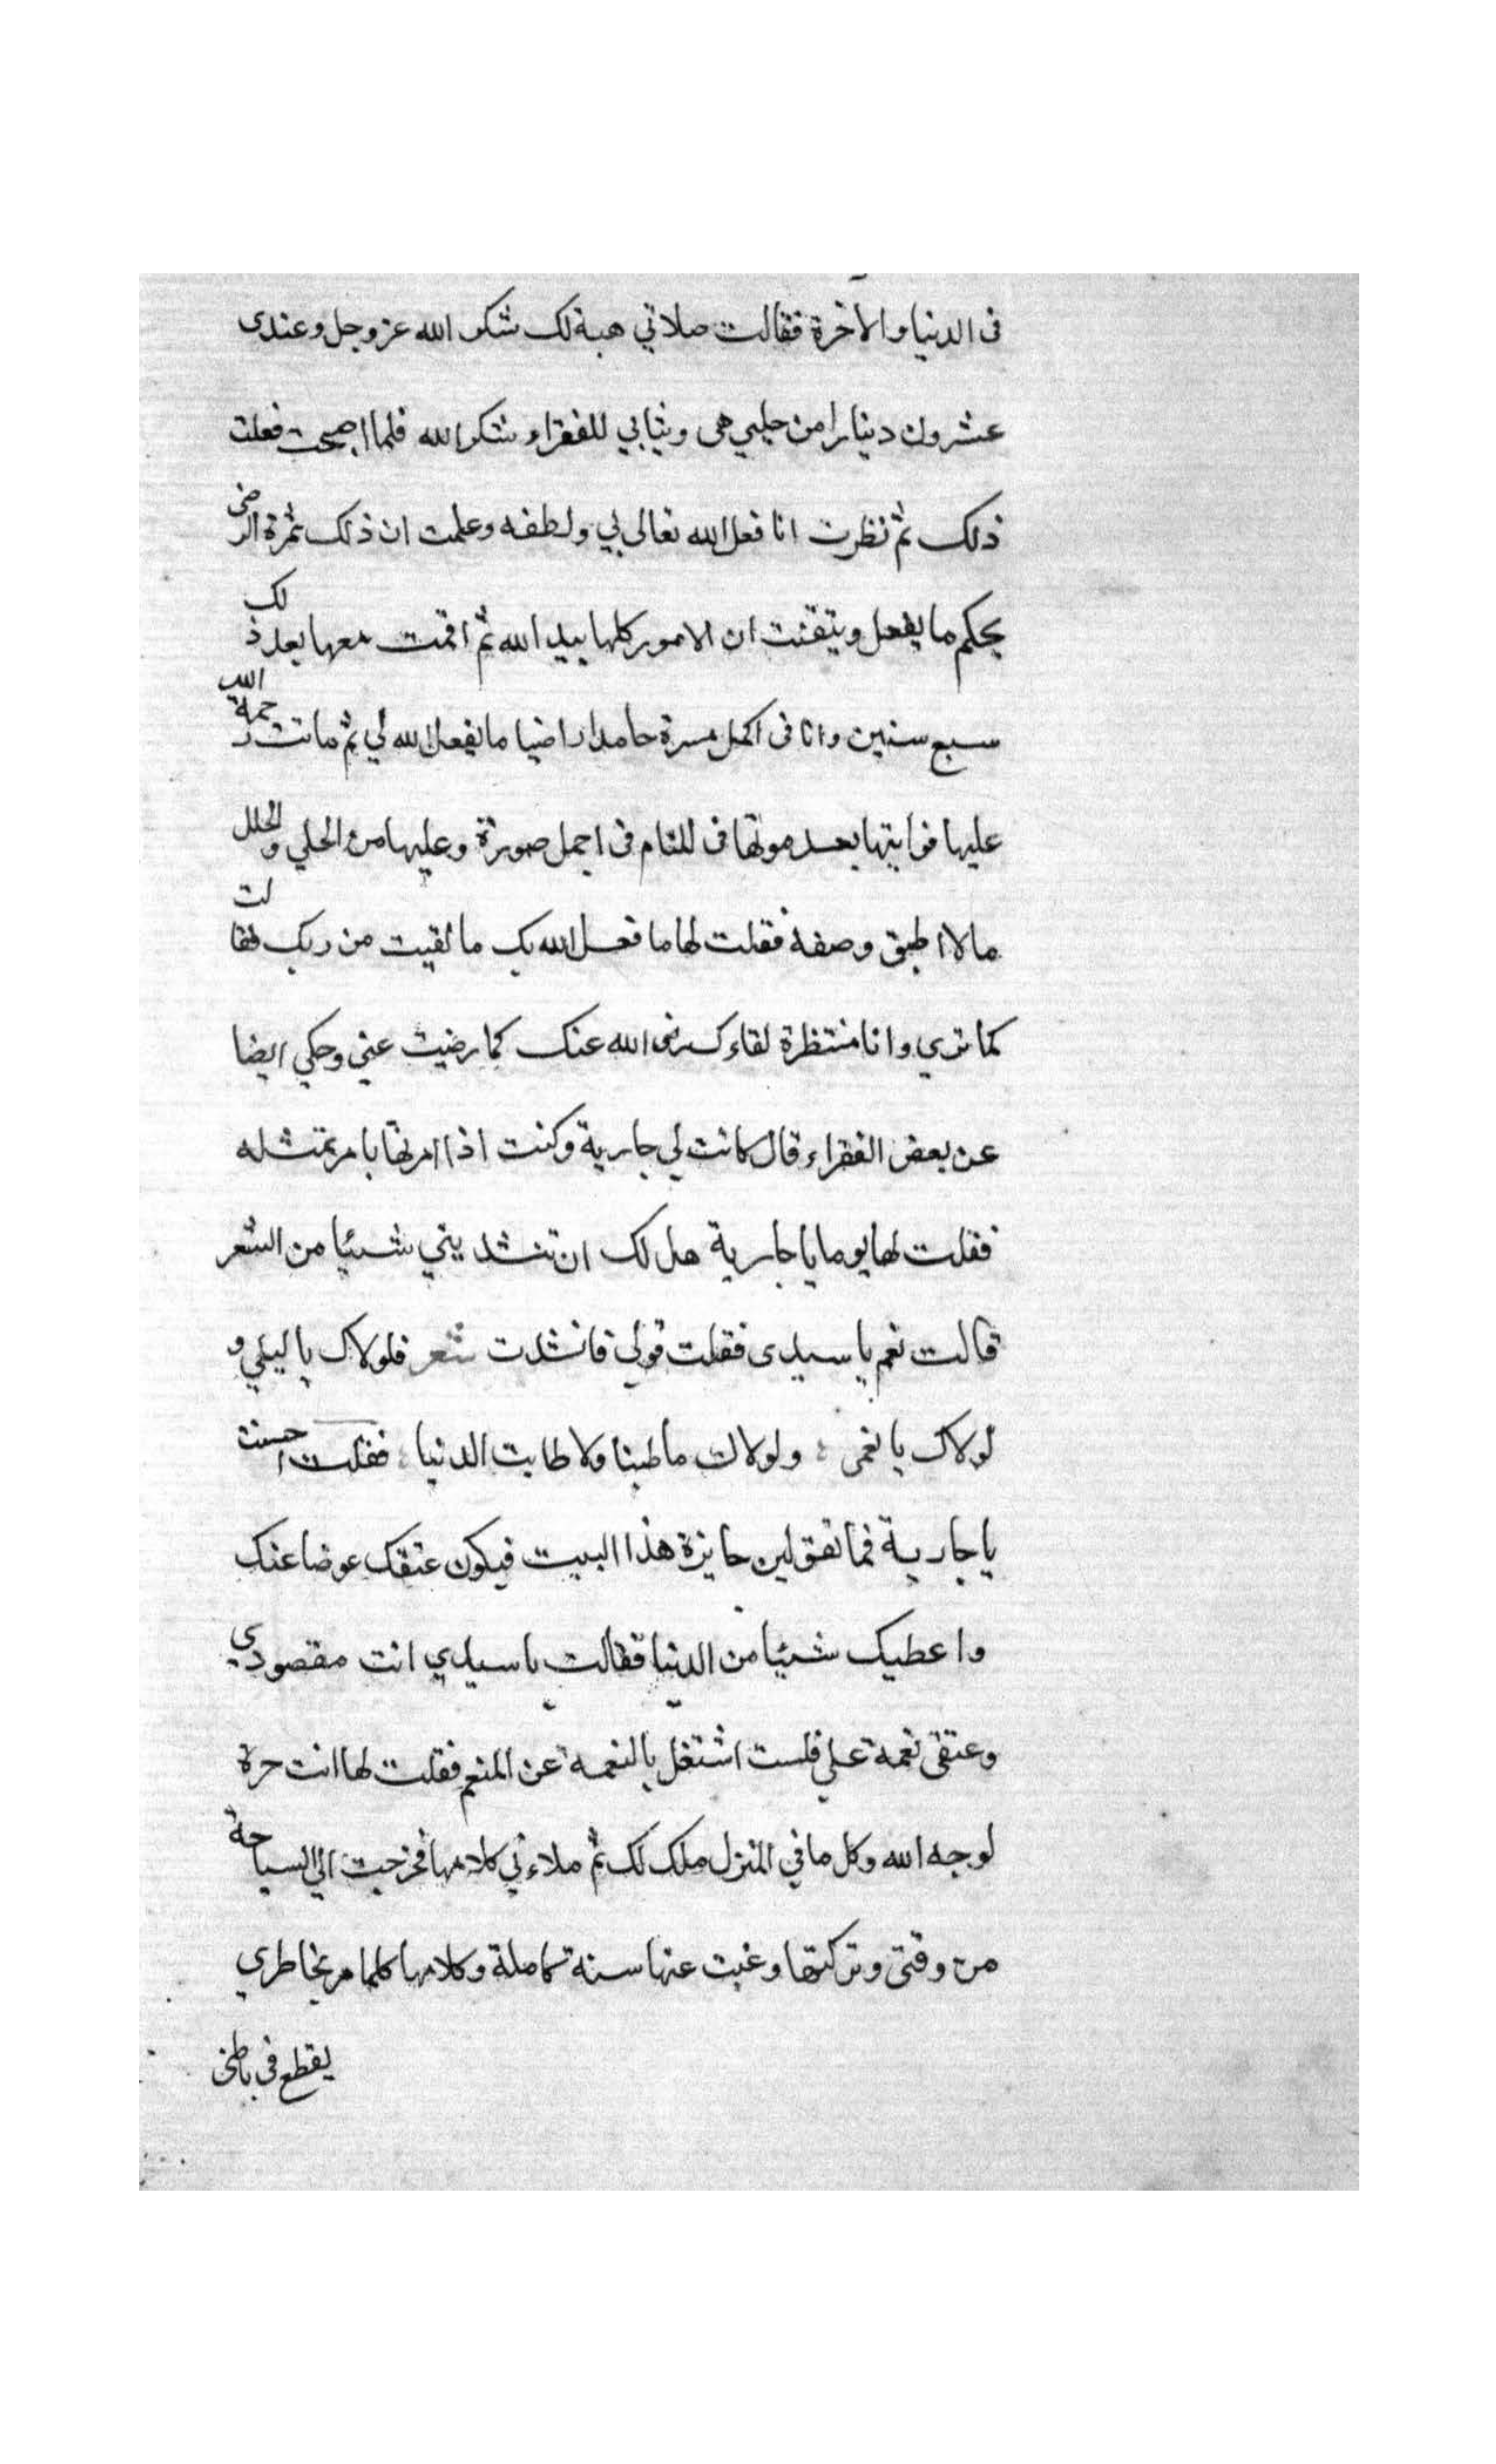 فى الدنيا والاخرة فقالت صلاتي هبة لك شكر الله عز وجل وعندى
عشرون دينارا من حليي هى وثيابي للفقراء شكرا لله فلما اصبحت فعلت
ذلك ثم نظرت انا فعل الله تعالى بي ولطفه وعلمت ان ذلك ثمرة الرضى
بحكم ما يفعل وتيقنت ان الامور كلها بيد الله ثم اقمت معها بعد ذلك
سبع سنين وانا فى اكمل مسرة حامدا راضيا ما يفعل الله لي ثم ماتت رحمة الله
عليها فرايتها بعد موتها فى المنام فى اجمل صورة وعليها من الحلي والحلل
ما لا اطيق وصفه فقلت لها ما فعل الله بك ما لقيت من ربك فقالت
كما تري وانا منتظرة لقاءك رضى الله عنك كما رضيت عني وحكي ايضا
عن بعض الفقراء قال كانت لي جارية وكنت اذا امرتها بامر تمتثله
فقلت لها يوما يا جارية هل لك ان تنشديني شيئا من الشعر
قالت نعم يا سيدى فقلت قولي فانشدت شعر فلولاك يا ليلي و
لولاك يا نعمى ولولاك ما طبنا ولا طابت الدنيا فقلت احسنت
يا جارية فما تقولين جايزة هذا البيت فيكون عتقك عوضا عنك
واعطيك شيئا من الدنيا فقالت يا سيدي انت مقصودي
وعتقى نعمة علي فلست اشتغل بالنعمة عن المنعم فقلت لها انت حرة
لوجه الله وكل ما في المنزل ملك لك ثم ملاءني كلامها فخرجت الي السياحة
من وقتى وتركتها وغبت عنها سنة كاملة وكلامها كلما مر بخاطري
يقطع فى باطنى